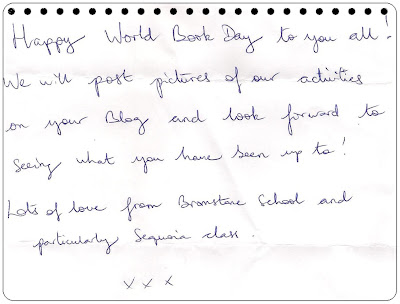 Happy World Book Day to you all!
We will post pictures of our activities
on your Blog and look forward to
seeing what you have been up to!
Lots of love from Bromstone School and
particularly Sequoia class.
x x x